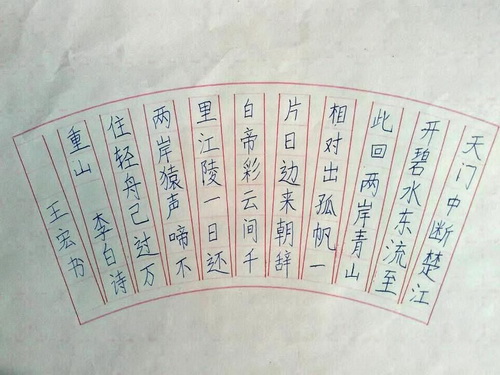 天门中断楚江
开碧水东流至
此回两岸青山
相对出孤帆一
片日边来朝辞
白帝彩云间千
里江陵一日还
两岸猿声啼不
住轻舟已过万
重山 李白诗
王宏书